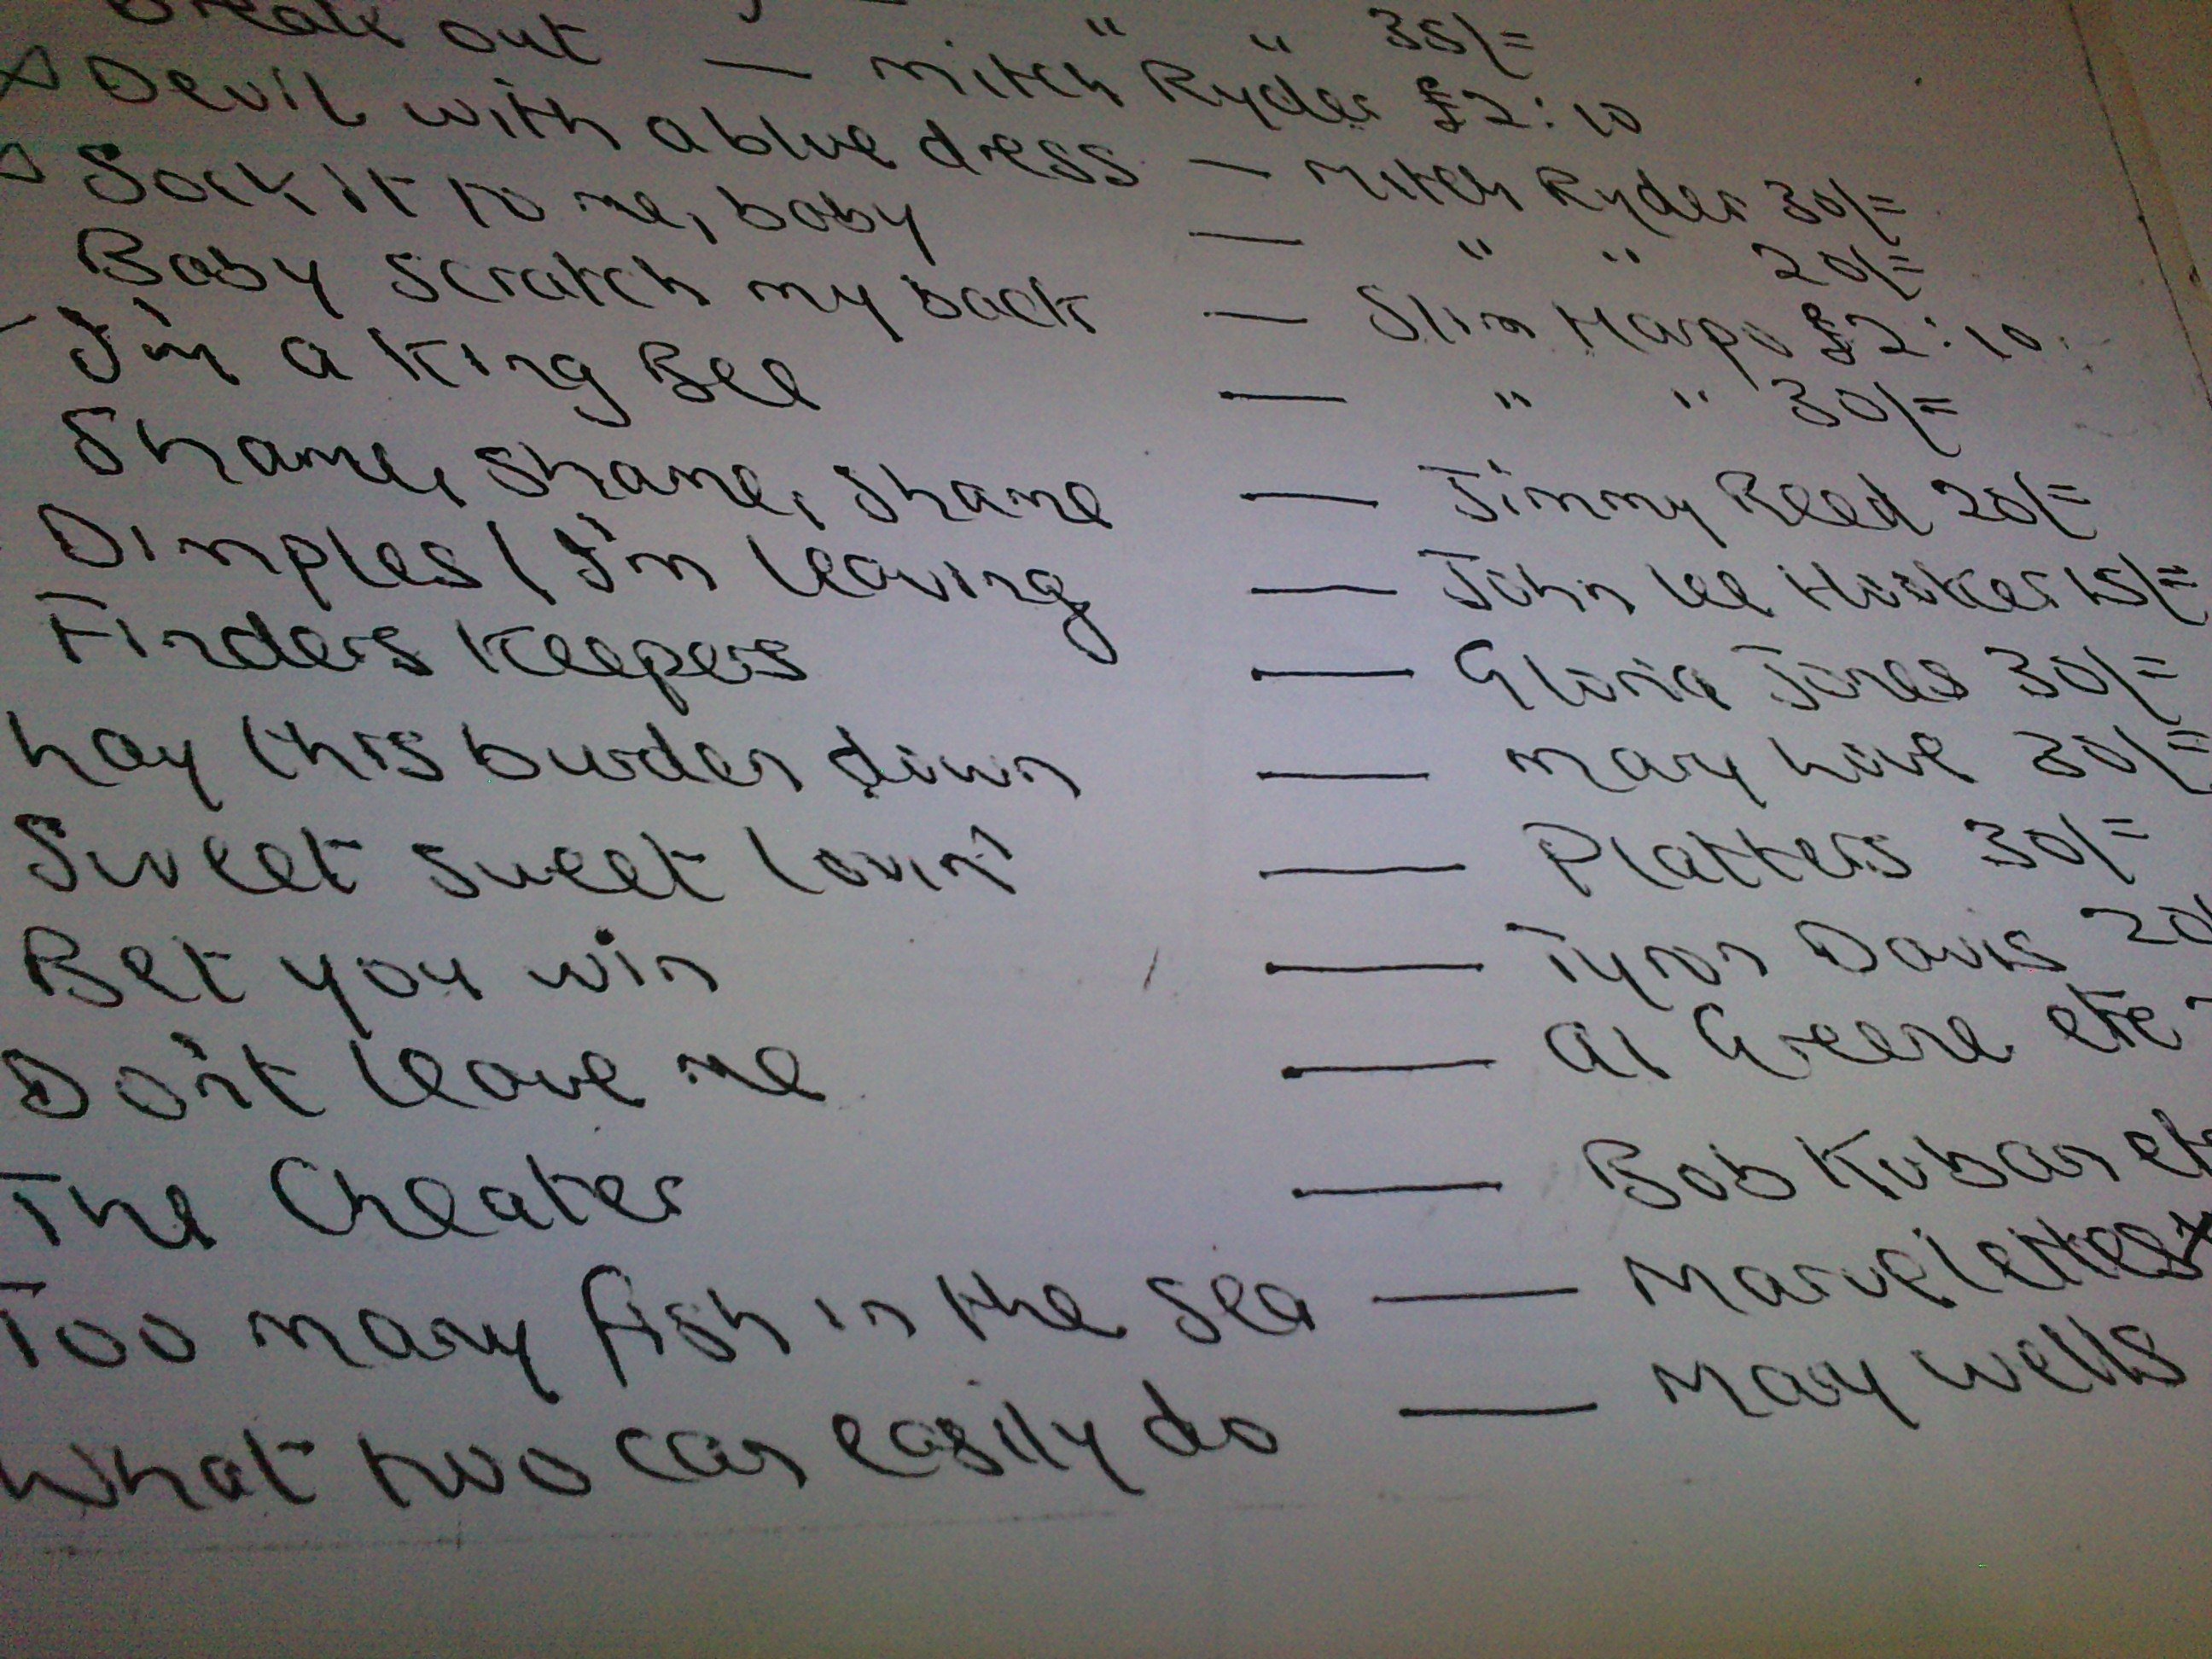 Break out — " " 35/=
Devil with a blue dress — Mitch Ryder £2:10
Sock it to me, baby — Mitch Ryder 30/=
Baby scratch my back — " " 20/=
I'm a King Bee — Slim Harpo £2:10
Shame, shame, shame — " " 30/=
Dimples / I'm leaving — Jimmy Reed 20/=
Finders Keepers — John Lee Hooker 15/=
Lay this burden down — Gloria Jones 30/=
Sweet sweet lovin' — Mary Love 30/=
Bet you win — Platters 30/=
Don't leave me — Tyron Davis 20/
The Cheater — Al Greene etc
Too many fish in the sea — Bob Kuban etc
What two can easily do — Marvelettes
Mary Wells